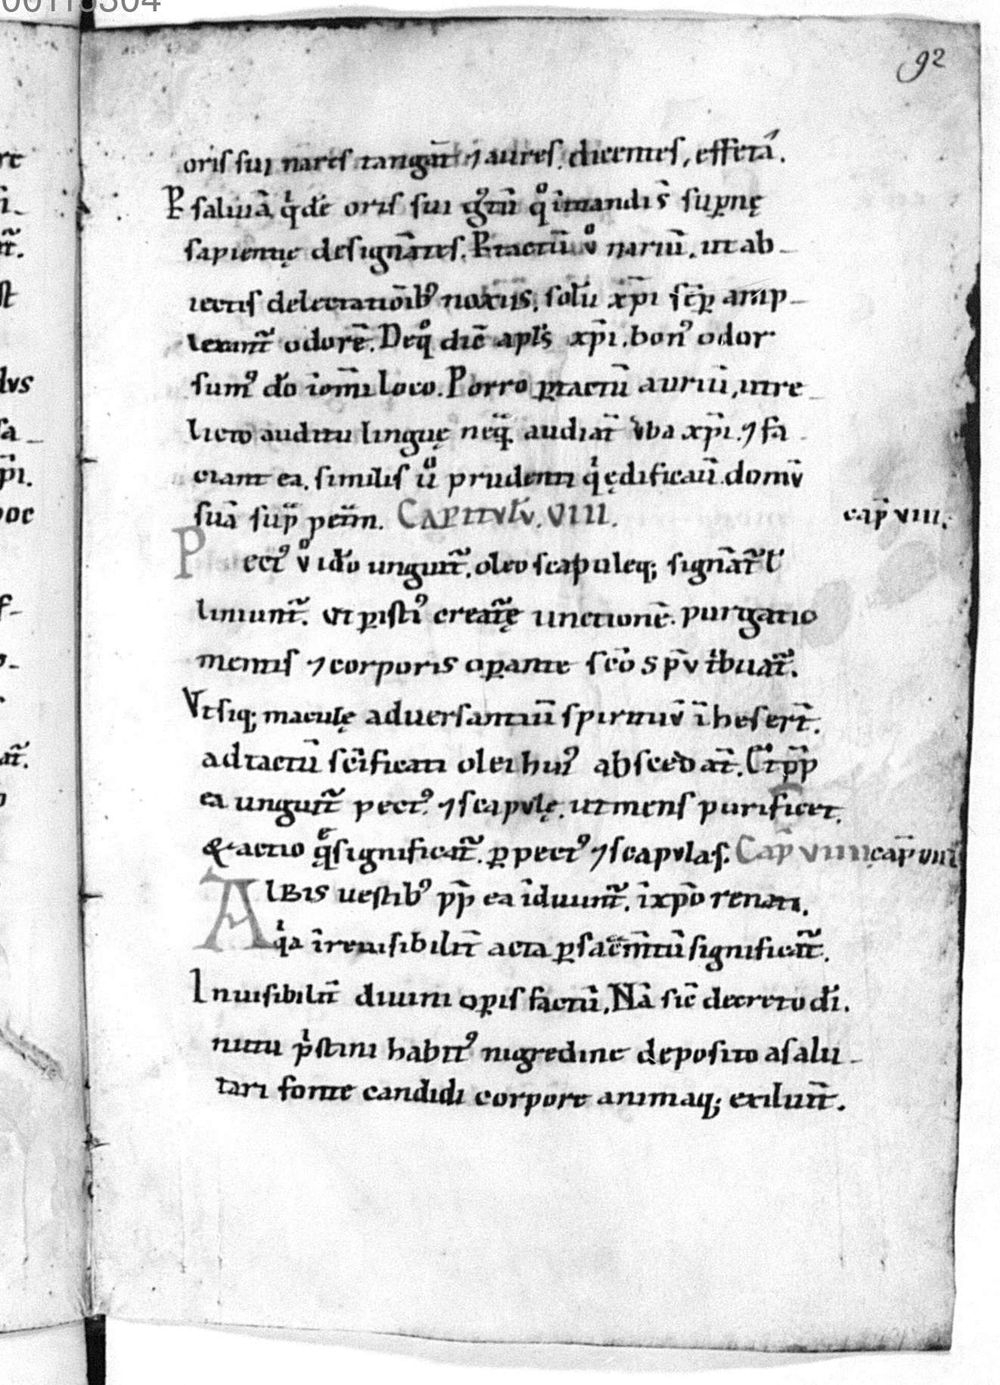 00115304
92
oris sui nares tangūt ⁊ aures. dicentes, effeta.
P̲ saliuā q̇dē oris sui gͣtū qͦ īmandis̄ sup̲nę
sapientię designātes. P̲tactū v̊ nariū. ut ab-
iectis delectationib⁹ noxiis, solū xp̄i sēp̲ amp-
lexent̄ odorē. Deq̊ dic̄ apl̄s xp̄i. bon⁹ odor
sum⁹ dō ī om̄i loco. Porro p̲tactū auriū, utre-
licto auditu linguę neq̄. audiāt ṽba xp̄i. ⁊ fa-
ciant ea. similis ů prudenti q̇ ędificauı̄. domū
suā sup̄ petm̄. CAPITVLV̄. VIII.
cap̄ viii.
Pect⁹ v̊ idō ungunt̄. oleo scapuleq; signāt̄ ł
liniunt̄. Vt p̲isti⁹ creatᷓę unctionē. purgatio
mentis ⁊ corporis op̲ante sc̄o sp̄u tͥbuat̄.
Vtsiq; maculę aduersantiū spirituū īheser̄t.
adtactū sc̄ificati olei hui⁹ abscedāt. Et pp̄
ea ungunt̄ pect⁹. ⁊ scapulę. ut mens purificet.
& actio q̄ significat̄. p̲ pect⁹ ⁊ scapulas. Cap̄ viiii
cap̄ viiii
Albis uestib⁹ pp̄ ea īduunt̄. īxp̄o renati.
q̇a īreuisibilit̄ acta p̲ sacm̄tū significat̄.
Inuisibilit̄ diuini op̲is factū. Nā sic̄ decreto dī.
nutu p̍stini habit⁹ nigredine deposito asalu-
tari fonte candidi corpore animaq; exilunt̄.